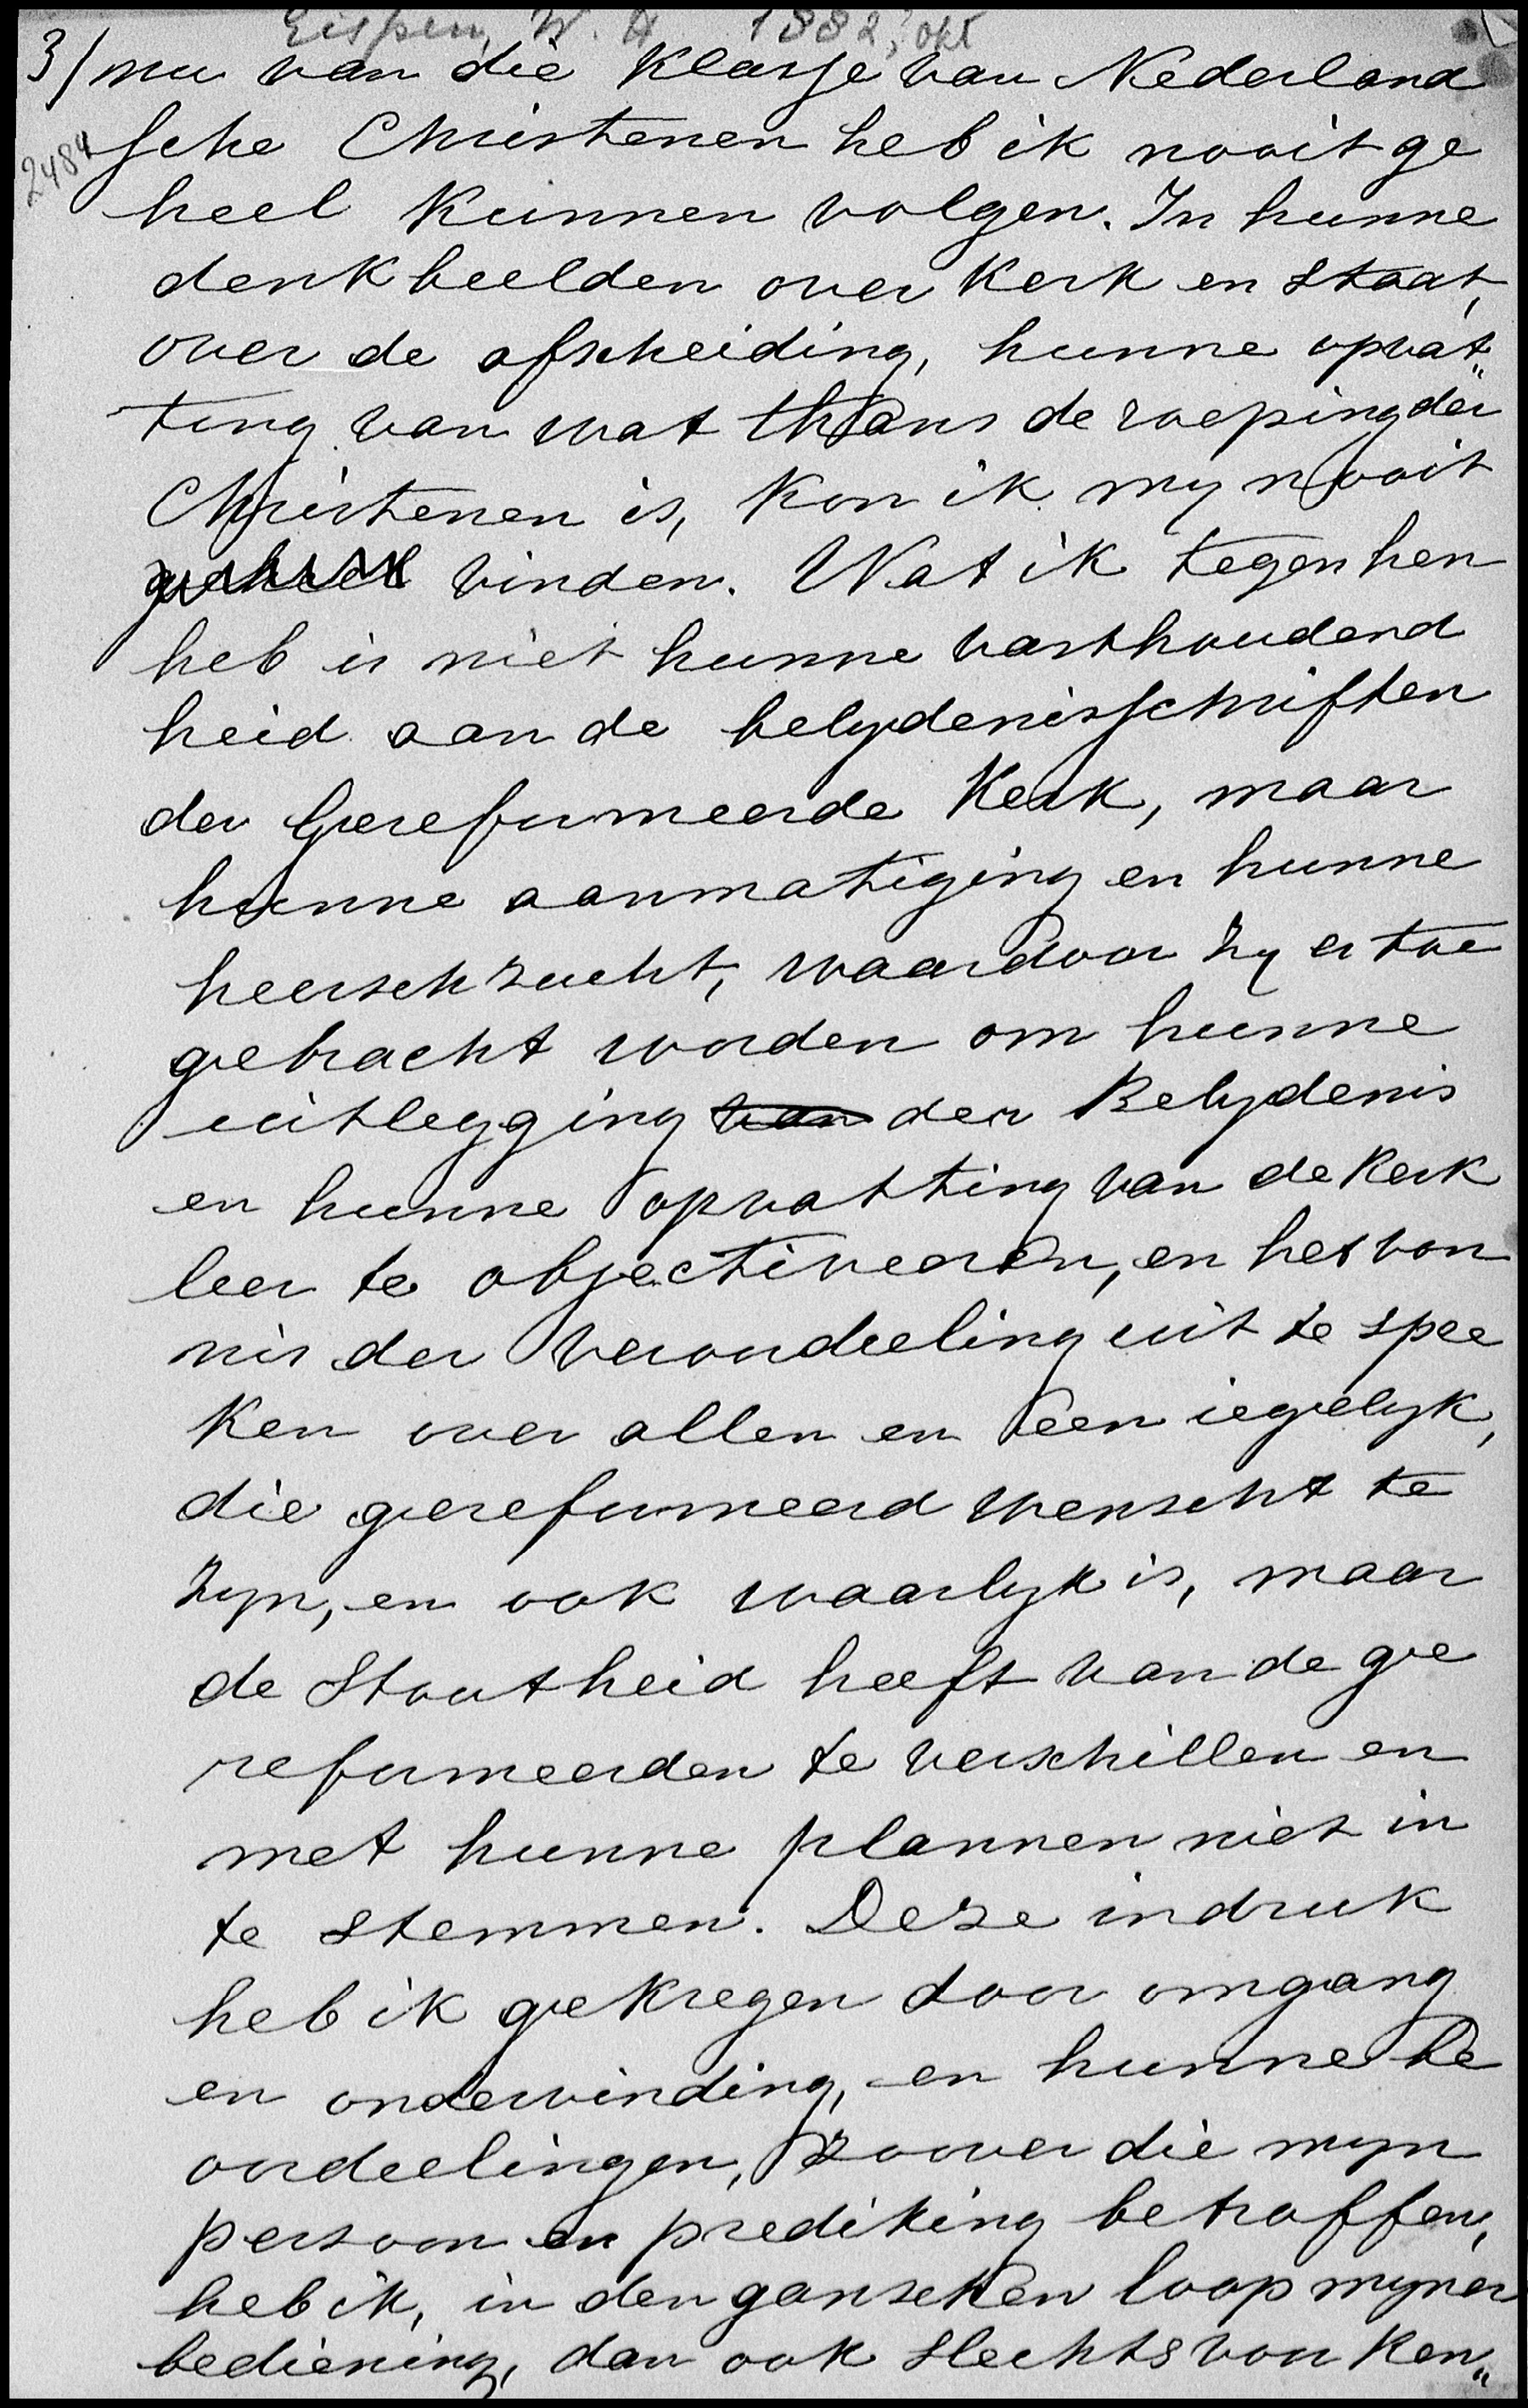 Eispen, W. A 1882, okt
3/ nu van die klasse van Nederland
2484
sche Christenen heb ik nooit ge
heel kunnen volgen. In hunne
denkbeelden over Kerk en Staat,
over de afscheiding, hunne opvat„
ting van wat thans de roeping der
Christenen is, kon ik my nooit
geheel vinden. Wat ik tegen hen
heb is niet hunne vasthoudend
heid aan de belydenisschriften
der Gereformeerde Kerk, maar
hunne aanmatiging en hunne
heerschzucht, waardoor zy er toe
gebracht worden om hunne
uitlegging van der Belydenis
en hunne opvatting van de Kerk
leer te objectiveeren, en het von
nis der veroordeeling uit te spre
ken over allen en een iegelyk,
die gereformeerd wenscht te
zyn, en ook waarlyk is, maar
de stoutheid heeft van de ge
reformeerden te verschillen en
met hunne plannen niet in
te stemmen. Deze indruk
heb ik gekregen door omgang
en ondervinding, en hunne be
oordeelingen, zoover die myn
persoon en prediking betroffen,
heb ik, in den ganschen loop myner
bediening, dan ook slechts von ken„